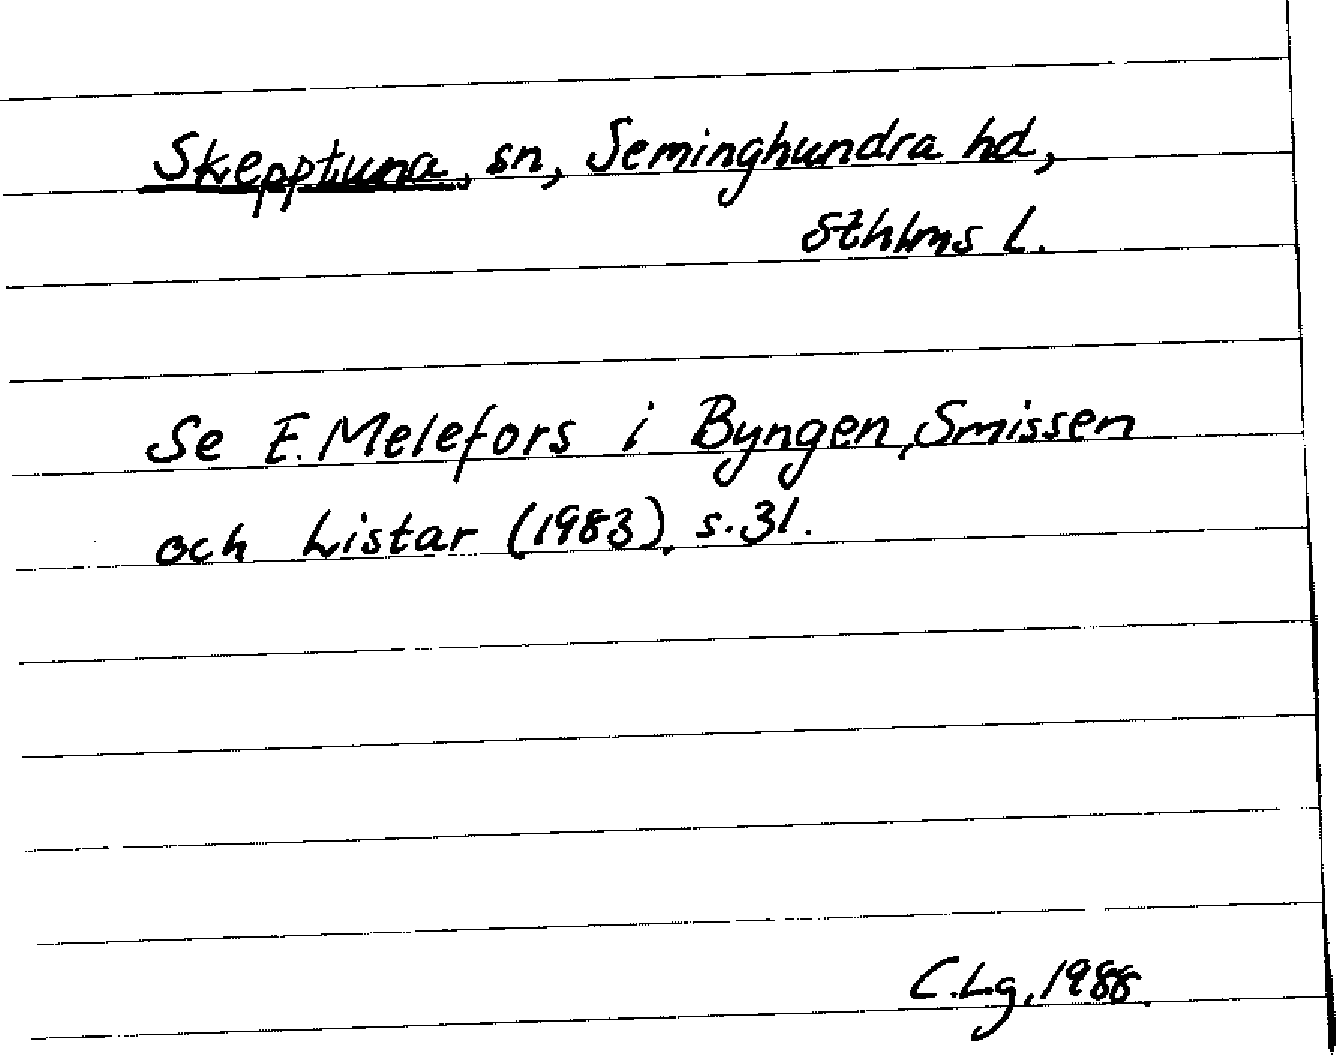 Skepptuna, sn, Seminghundra hd,
Sthlms l.
Se E. Melefors i Byngen, Smissen
och Listar (1983), s. 31.
C. Lg, 1988.